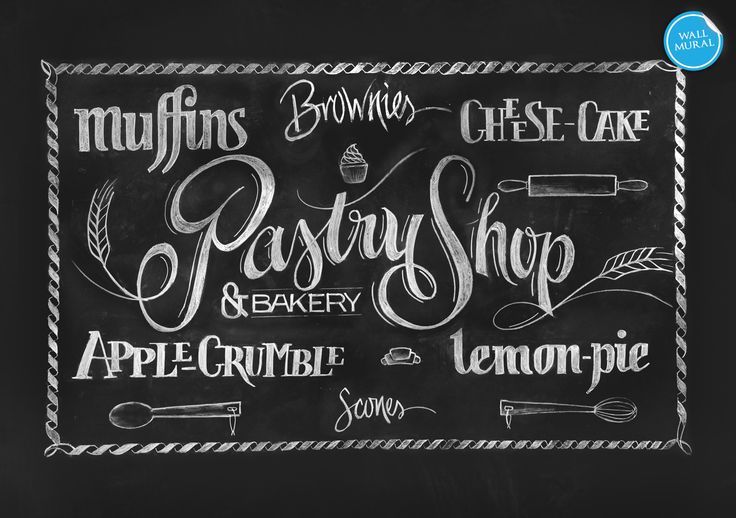 WALL
MURAL
muffins
Brownies
CHEESE-CAKE
Pastry Shop
& BAKERY
APPLE-CRUMBLE
lemon-pie
Scones